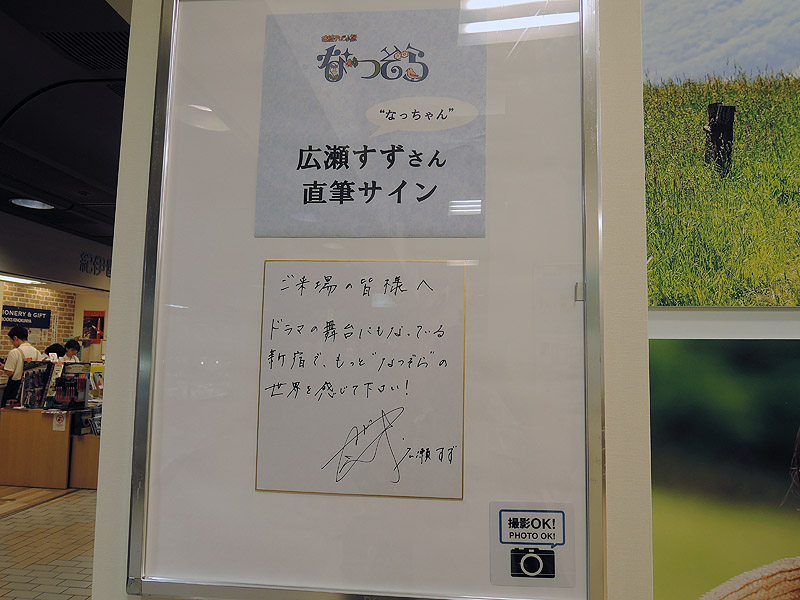 連続テレビ小説
なつぞら
“なっちゃん”
広瀬すずさん
直筆サイン
ご来場の皆様へ
ドラマの舞台にもなっている
新宿で、もっと“なつぞら”の
世界を感じて下さい!
広瀬すず
撮影OK!
PHOTO OK!
紀伊
IONERY & GIFT
BOOKS KINOKUNIYA